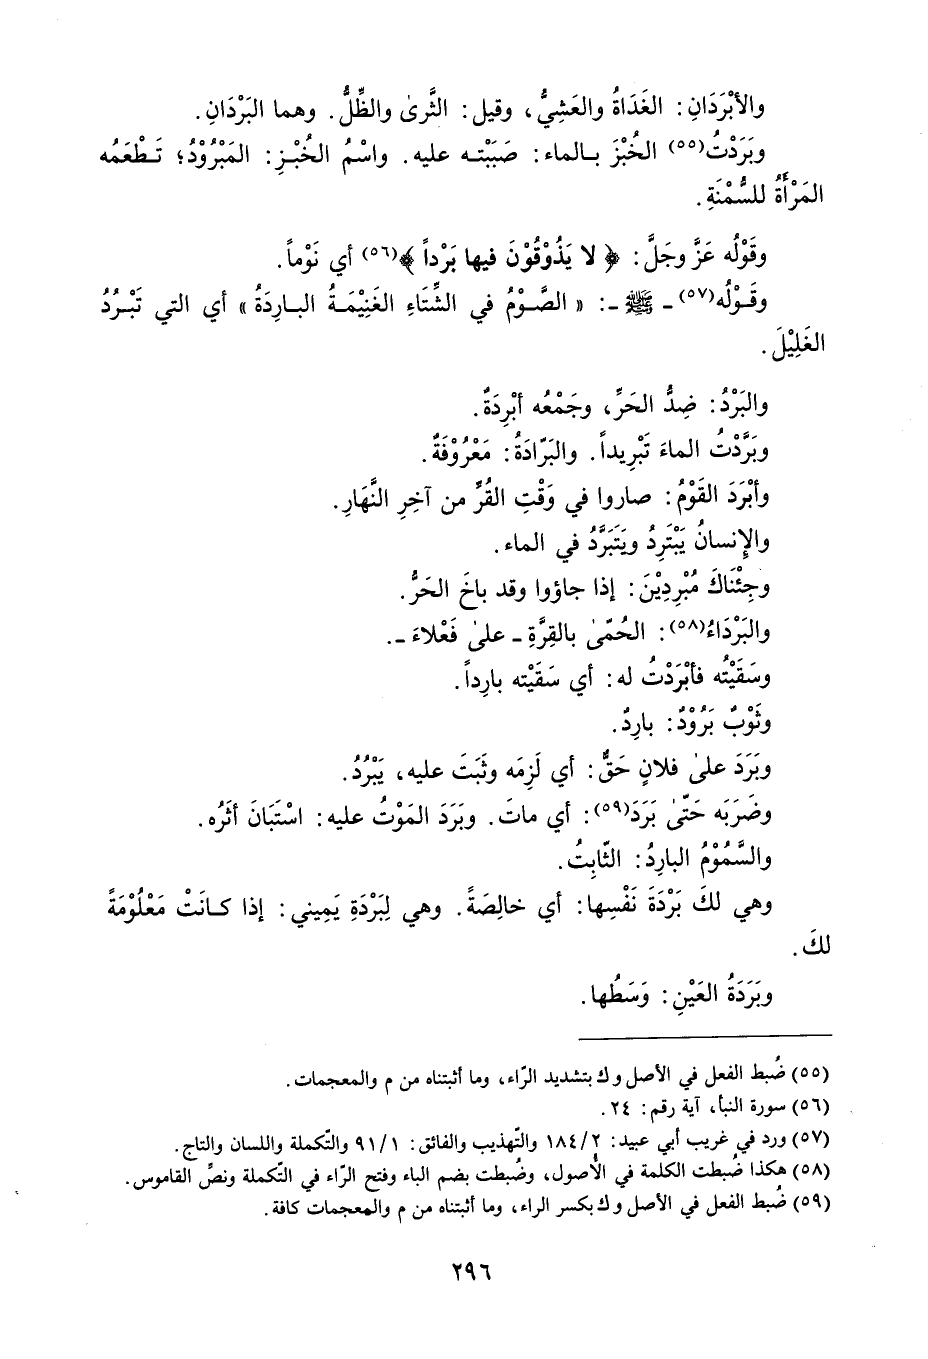 والأبْرَدَانِ: الغَدَاةُ والعَشِيُّ، وقيل: الثَّرىٰ والظِّلُّ. وهما البَرْدَانِ.
وبَرَدْتُ(٥٥) الخُبْزَ بالماء: صَبَبْته عليه. واسْمُ الخُبْزِ: المَبْرُوْدُ؛ تَطْعَمُه
المَرْأةُ للسُّمْنَةِ.
وقَوْلُه عَزَّ وجَلَّ: ﴿ لا يَذُوْقُوْنَ فيها بَرْداً ﴾(٥٦) أي نَوْماً.
وقَوْلُه(٥٧) - ﷺ -: « الصَّوْمُ في الشِّتَاءِ الغَنِيْمَةُ البارِدَةُ » أي التي تَبْرُدُ
الغَلِيْلَ.
والبَرْدُ: ضِدُّ الحَرِّ، وجَمْعُه أبْرِدَةٌ.
وبَرَّدْتُ الماءَ تَبْرِيداً. والبَرّادَةُ: مَعْرُوْفَةٌ.
وأبْرَدَ القَوْمُ: صاروا في وَقْتِ القُرِّ من آخِرِ النَّهَارِ.
والإِنسانُ يَبْتَرِدُ ويَتَبَرَّدُ في الماء.
وجِئْنَاكَ مُبْرِدِيْنَ: إذا جاؤوا وقد باخَ الحَرُّ.
والبَرْدَاءُ(٥٨): الحُمّىٰ بالقِرَّةِ - علىٰ فَعْلاءَ -.
وسَقَيْتُه فأبْرَدْتُ له: أي سَقَيْته بارِداً.
وثَوْبٌ بَرُوْدٌ: بارِدٌ.
وبَرَدَ علىٰ فلانٍ حَقٌّ: أي لَزِمَه وثَبَتَ عليه، يَبْرُدُ.
وضَرَبَه حَتّىٰ بَرَدَ(٥٩): أي ماتَ. وبَرَدَ المَوْتُ عليه: اسْتَبَانَ أثَرُه.
والسَّمُوْمُ البارِدُ: الثّابِتُ.
وهي لكَ بَرْدَةَ نَفْسِها: أي خالِصَةً. وهي لِبَرْدَةِ يَمِيني: إذا كانَتْ مَعْلُوْمَةً
لكَ.
وبَرَدَةُ العَيْنِ: وَسَطُها.
(٥٥) ضُبط الفعل في الأصل وك بتشديد الرّاء، وما أثبتناه من م والمعجمات.
(٥٦) سورة النبأ، آية رقم: ٢٤.
(٥٧) ورد في غريب أبي عبيد: ١٨٤/٢ والتّهذيب والفائق: ٩١/١ والتّكملة واللسان والتاج.
(٥٨) هكذا ضُبطت الكلمة في الأُصول، وضُبطت بضم الباء وفتح الرّاء في التّكملة ونصِّ القاموس.
(٥٩) ضُبط الفعل في الأصل وك بكسر الراء، وما أثبتناه من م والمعجمات كافة.
٢٩٦